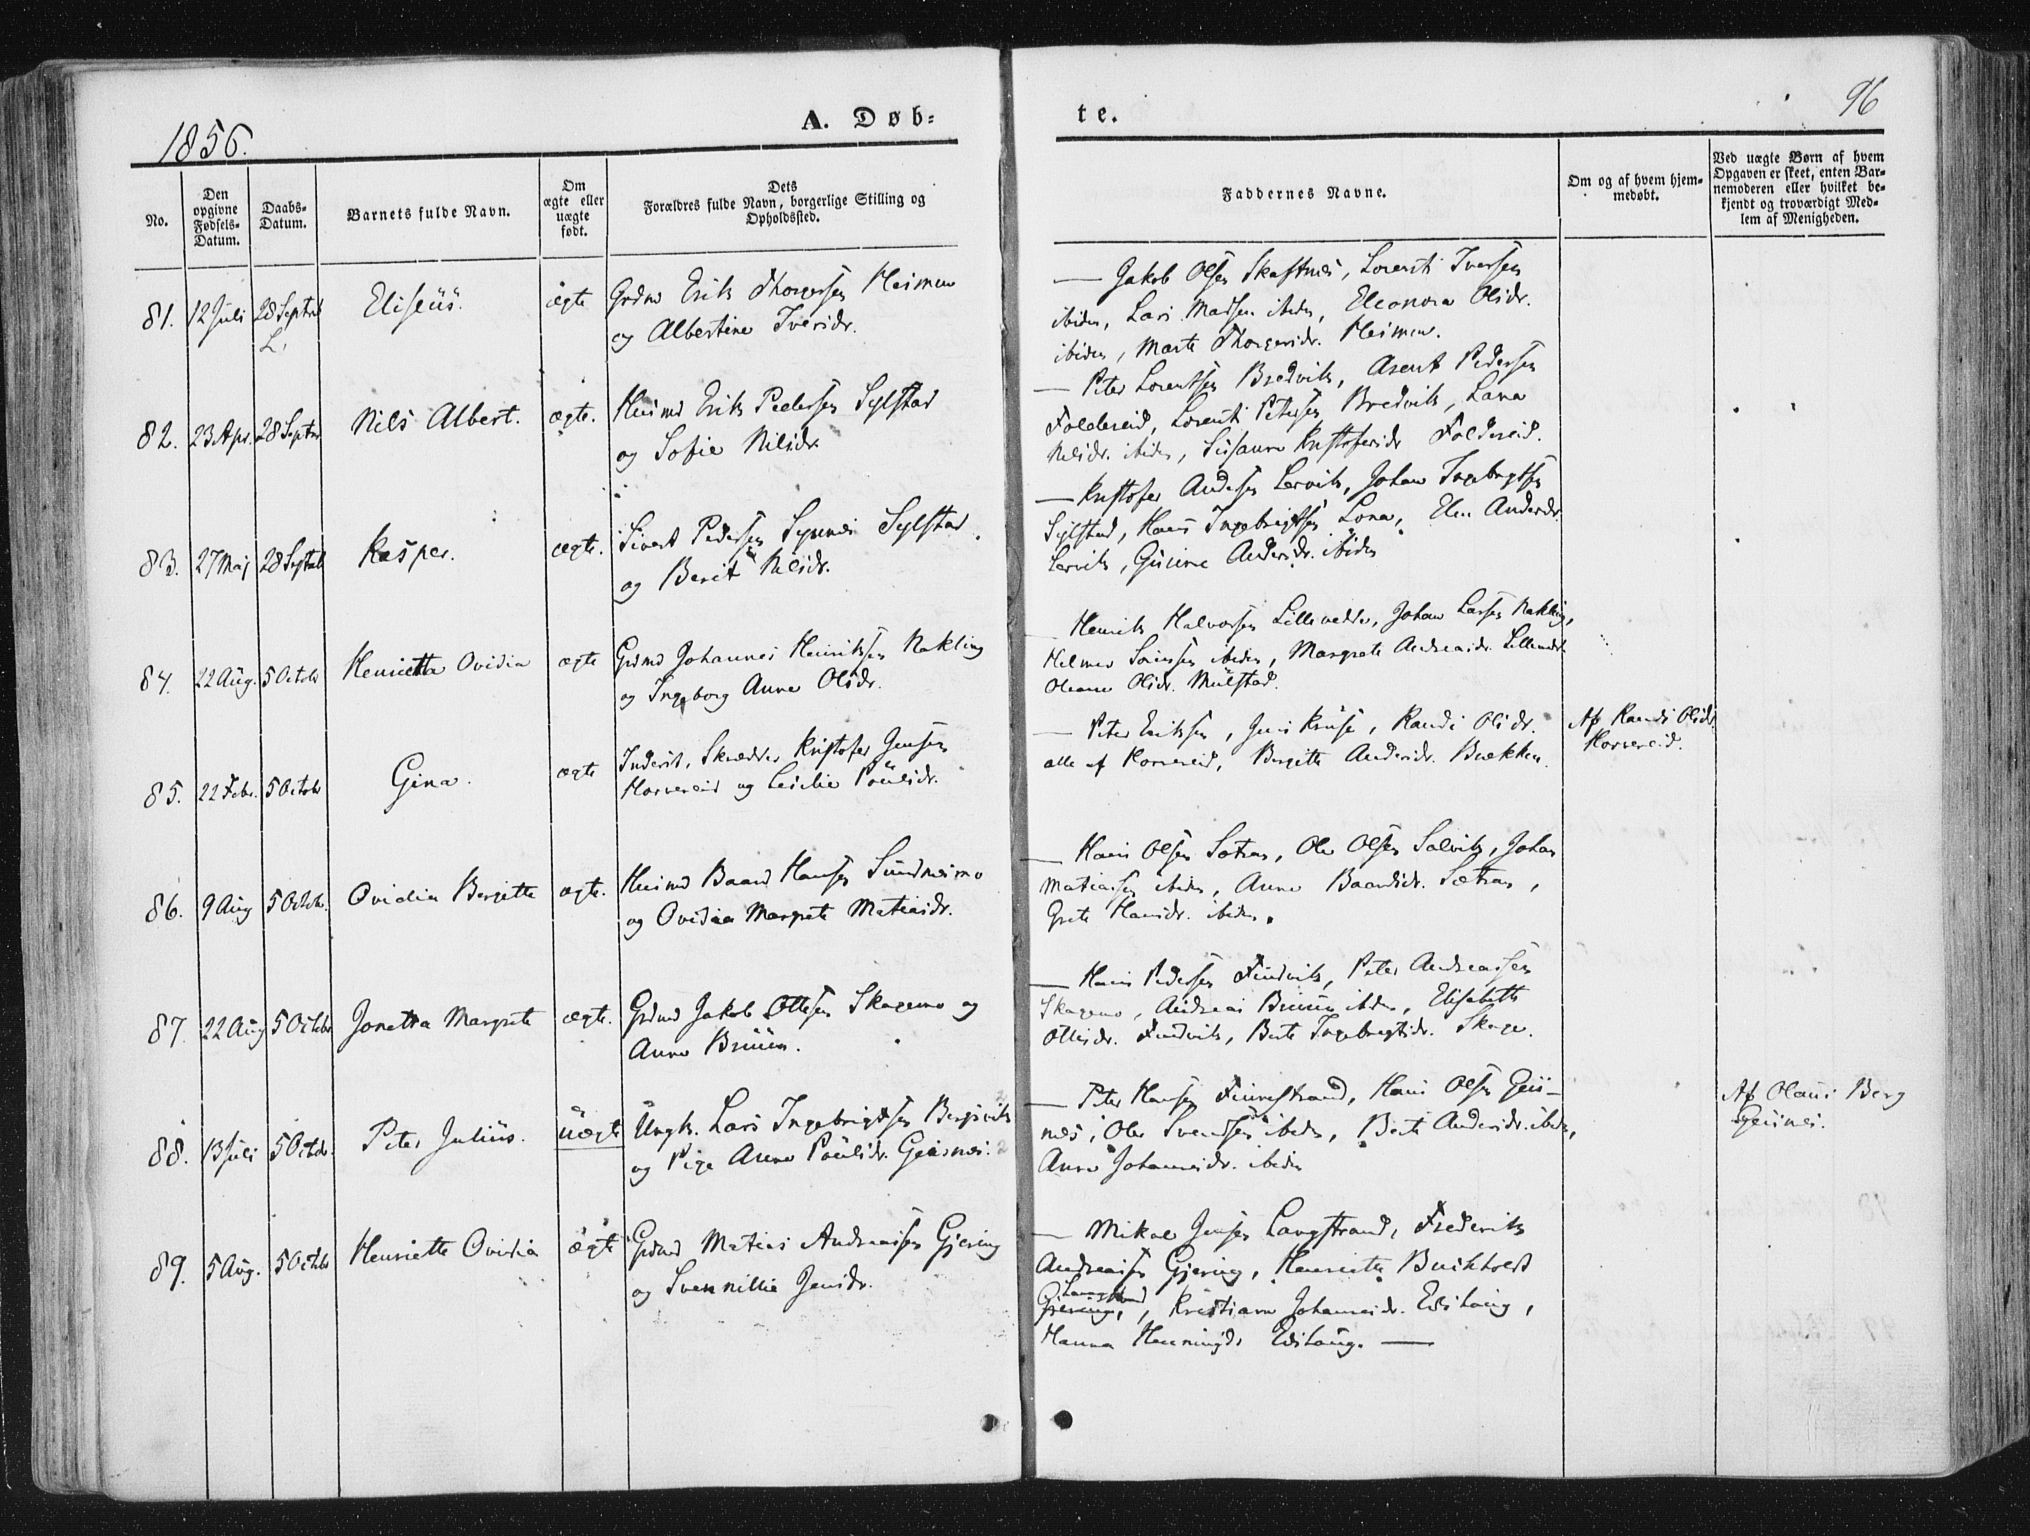 1856.
A. Døb-
te.
96
No.
Den opgivne Fødsels-Datum.
Daabs-Datum.
Barnets fulde Navn.
Om ægte eller uægte født.
Dets
Forældres fulde Navn, borgerlige Stilling og
Opholdssted.
Faddernes Navne.
Om og af hvem hjem-
medøbt.
Ved uægte Børn af hvem
Opgaven er skeet, enten Bar-
nemoderen eller hvilket be-
kjendt og troværdigt Med-
lem af Menigheden.
81. 12 Juli 28 Septbr Eliseus. ægte Grdmd Erik Thorgersen Heimen
og Albertine Iversdr.
— Jakob Olsen Skaftnes, Lorents Iversen
ibidm, Lars Madsen ibidm, Eleonora Olsdr.
ibidm, Marte Thorgersdr. Heimen.
82. 23 Apr. 28 Septbr Nils Albert. ægte. Husmd Erik Pedersen Sylstad
og Sofie Nilsdr.
— Peter Lorentsen Bredvik, Arent Pedersen
Foldereid, Lorents Petersen Bredvik, Lava
Nilsdr. ibidm, Susanna Kristofersdr Foldereid.
83. 27 Maj 28 Septbr Kasper. ægte. Sivert Pedersen Sylstad
og Berit Nilsdr.
— Kristofer Andersen Lervik, Johan Ingebrigtsen
Sylstad, Hans Ingebrigtsen Lona, Elen Andersdr.
Lervik, Andersdr. ibidm
84. 22 Aug. 5 Octobr Henriette Ovidia ægte Grdmd Johannes Henriksen Nakling
og Ingeborg Anna Olsdr.
Henrik Halvorsen Johan Larsen Nakling,
Hilmer ibidm, Margrete Andreasdr.
Oleane Olsdr.
85. 22 Febr. 5 Octobr Gina. ægte Inderst, Skrædder Kristofer Jensen
Horsereid og Poulsdr.
— Peter Eriksen, Jens Kruse, Randi Olsdr.
alle af Horsereid, Bergitte Andersdr. Brækken.
Af Randi Olsdr
Horsereid.
86. 9 Aug 5 Octobr. Ovidia Bergitte ægte. Husmd Baard Hansen Sundnesmo
og Ovidia Margrete Matiasdr.
— Hans Olsen Sætran, Ole Olsen Salvik, Johan
Matiassen ibidm, Anne Baardsdr. Sætran,
Grete Hansdr. ibidm.
87. 22 Aug 5 Octobr Jonetta Margrete ægte. Grdmd Jakob Ottesen Skagemo og
Anne Bruun.
— Hans Pedersen Finvik, Peter Andreassen
Skagemo, Andreas Bruun ibidm, Elisabeth
Ottesdr. Finvik, Berte Ingebrigtsdr. Skage.
88. 13 Juli 5 Octobr. Peter Julius. uægte Ungk. Lars Ingebrigtsen Bergsvik
og Pige Anne Poulsdr. Geisnes.
— Peter Hansen Finnestrand, Hans Olsen Geis-
nes, Ole Svendsen ibidm, Berte Andersdr. ibidm,
Anne Johannesdr. ibidm
Af Olaus Berg
Geisnes.
89. 5 Aug. 5 Octobr Henriette Ovidia ægte Grdmd Matias Andreassen Gjering
og Jensdr.
— Mikal Jensen Langstrand, Frederik
Andreassen Gjering, Henriette Buchholdt
Langstrand
Gjering, Kristiane Johannesdr. Edshoug,
Hanna Henningsdr Edshoug. —